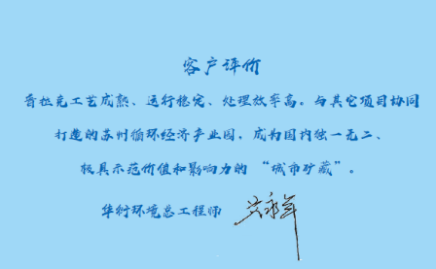 客户评价
普拉克工艺成熟、运行稳定、处理效率高。与其它项目协同
打造的苏州循环经济产业园，成为国内独一无二、
极具示范价值和影响力的“城市矿藏”。
华衍环境总工程师